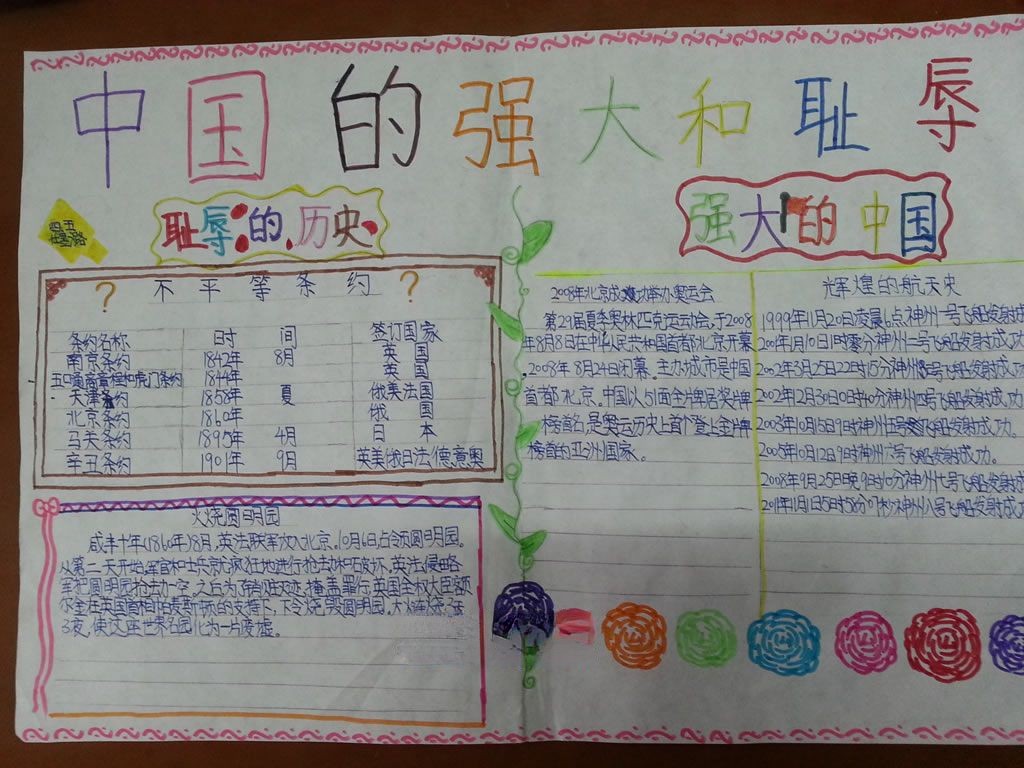 中国的强大和耻辱
耻辱的历史
?不平等条约?
条约名称 时间 签订国家
南京条约 1842年8月 英国
五口通商章程和虎门条约 1844年 英国
天津条约 1858年 夏 俄美法国
北京条约 1860年 俄国
马关条约 1895年 4月 日本
辛丑条约 1901年 9月 英美俄日法德意奥
火烧圆明园
咸丰十年(1860年)8月,英法联军攻入北京。10月6日占领圆明园。
从第二天开始,军官和士兵就疯狂地进行抢劫和破坏,英法侵略
军把圆明园抢劫一空。之后为了销赃灭迹,掩盖罪行,英国全权大臣额
尔金在英国首相帕麦斯顿的支援下,下令烧毁圆明园。大火连烧
3夜,使这座世界名园化为一片废墟。
强大的中国
2008年北京成功举办奥运会
第29届夏季奥林匹克运动会,于2008
年8月8日在中华人民共和国首都北京开幕
.2008年8月24日闭幕.主办城市是中国
首都北京。中国以51面金牌居奖牌
榜首名,是奥运历史上首个登上金牌
榜首的亚洲国家。
辉煌的航天史
1999年11月20日凌晨6点神州一号飞船发射成
2001年1月10日1时零分神州二号飞船发射成功
2002年3月25日22时15分神州三号飞船发射成
2002年12月30日0时40分神州四号飞船发射成功
2003年10月15日9时神州五号飞船发射成功。
2005年10月12日9时神州六号飞船发射成功。
2008年9月25日晚9时10分神州七号飞船发射成
2011年11月1日5时58分07秒神州八号飞船发射成功